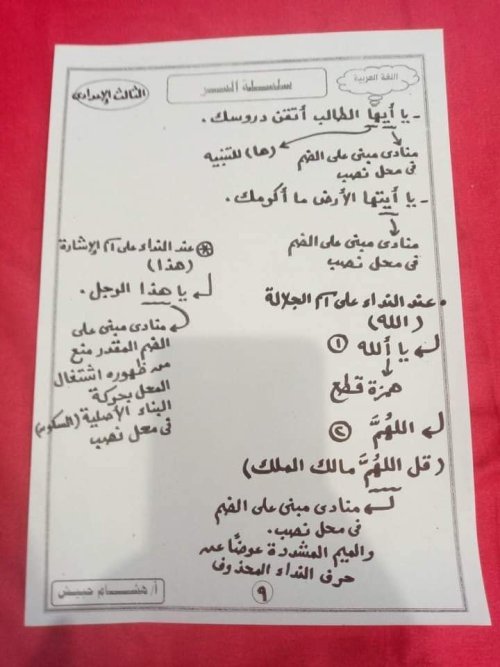 اللغة العربية
سلسلة التميز
الثالث الإعدادى
- يا أيها الطالب أتقن دروسك.
منادى مبنى على الضم
فى محل نصب
(ها) للتنبيه
- يا أيتها الأرض ما أكرمك.
منادى مبنى على الضم
فى محل نصب
• عند النداء على اسم الجلالة
(الله)
① يا ألله
همزة قطع
② اللهُمَّ
(قل اللهُمَّ مالك الملك)
منادى مبنى على الضم
فى محل نصب.
والميم المشددة عوضًا عن
حرف النداء المحذوف
⊛ عند النداء على اسم الإشارة
(هذا)
يا هذا الرجل.
منادى مبنى على
الضم المقدر منع
من ظهوره اشتغال
المحل بحركة
البناء الأصلية (السكون)
فى محل نصب
٩
أ/ هشام حبيش